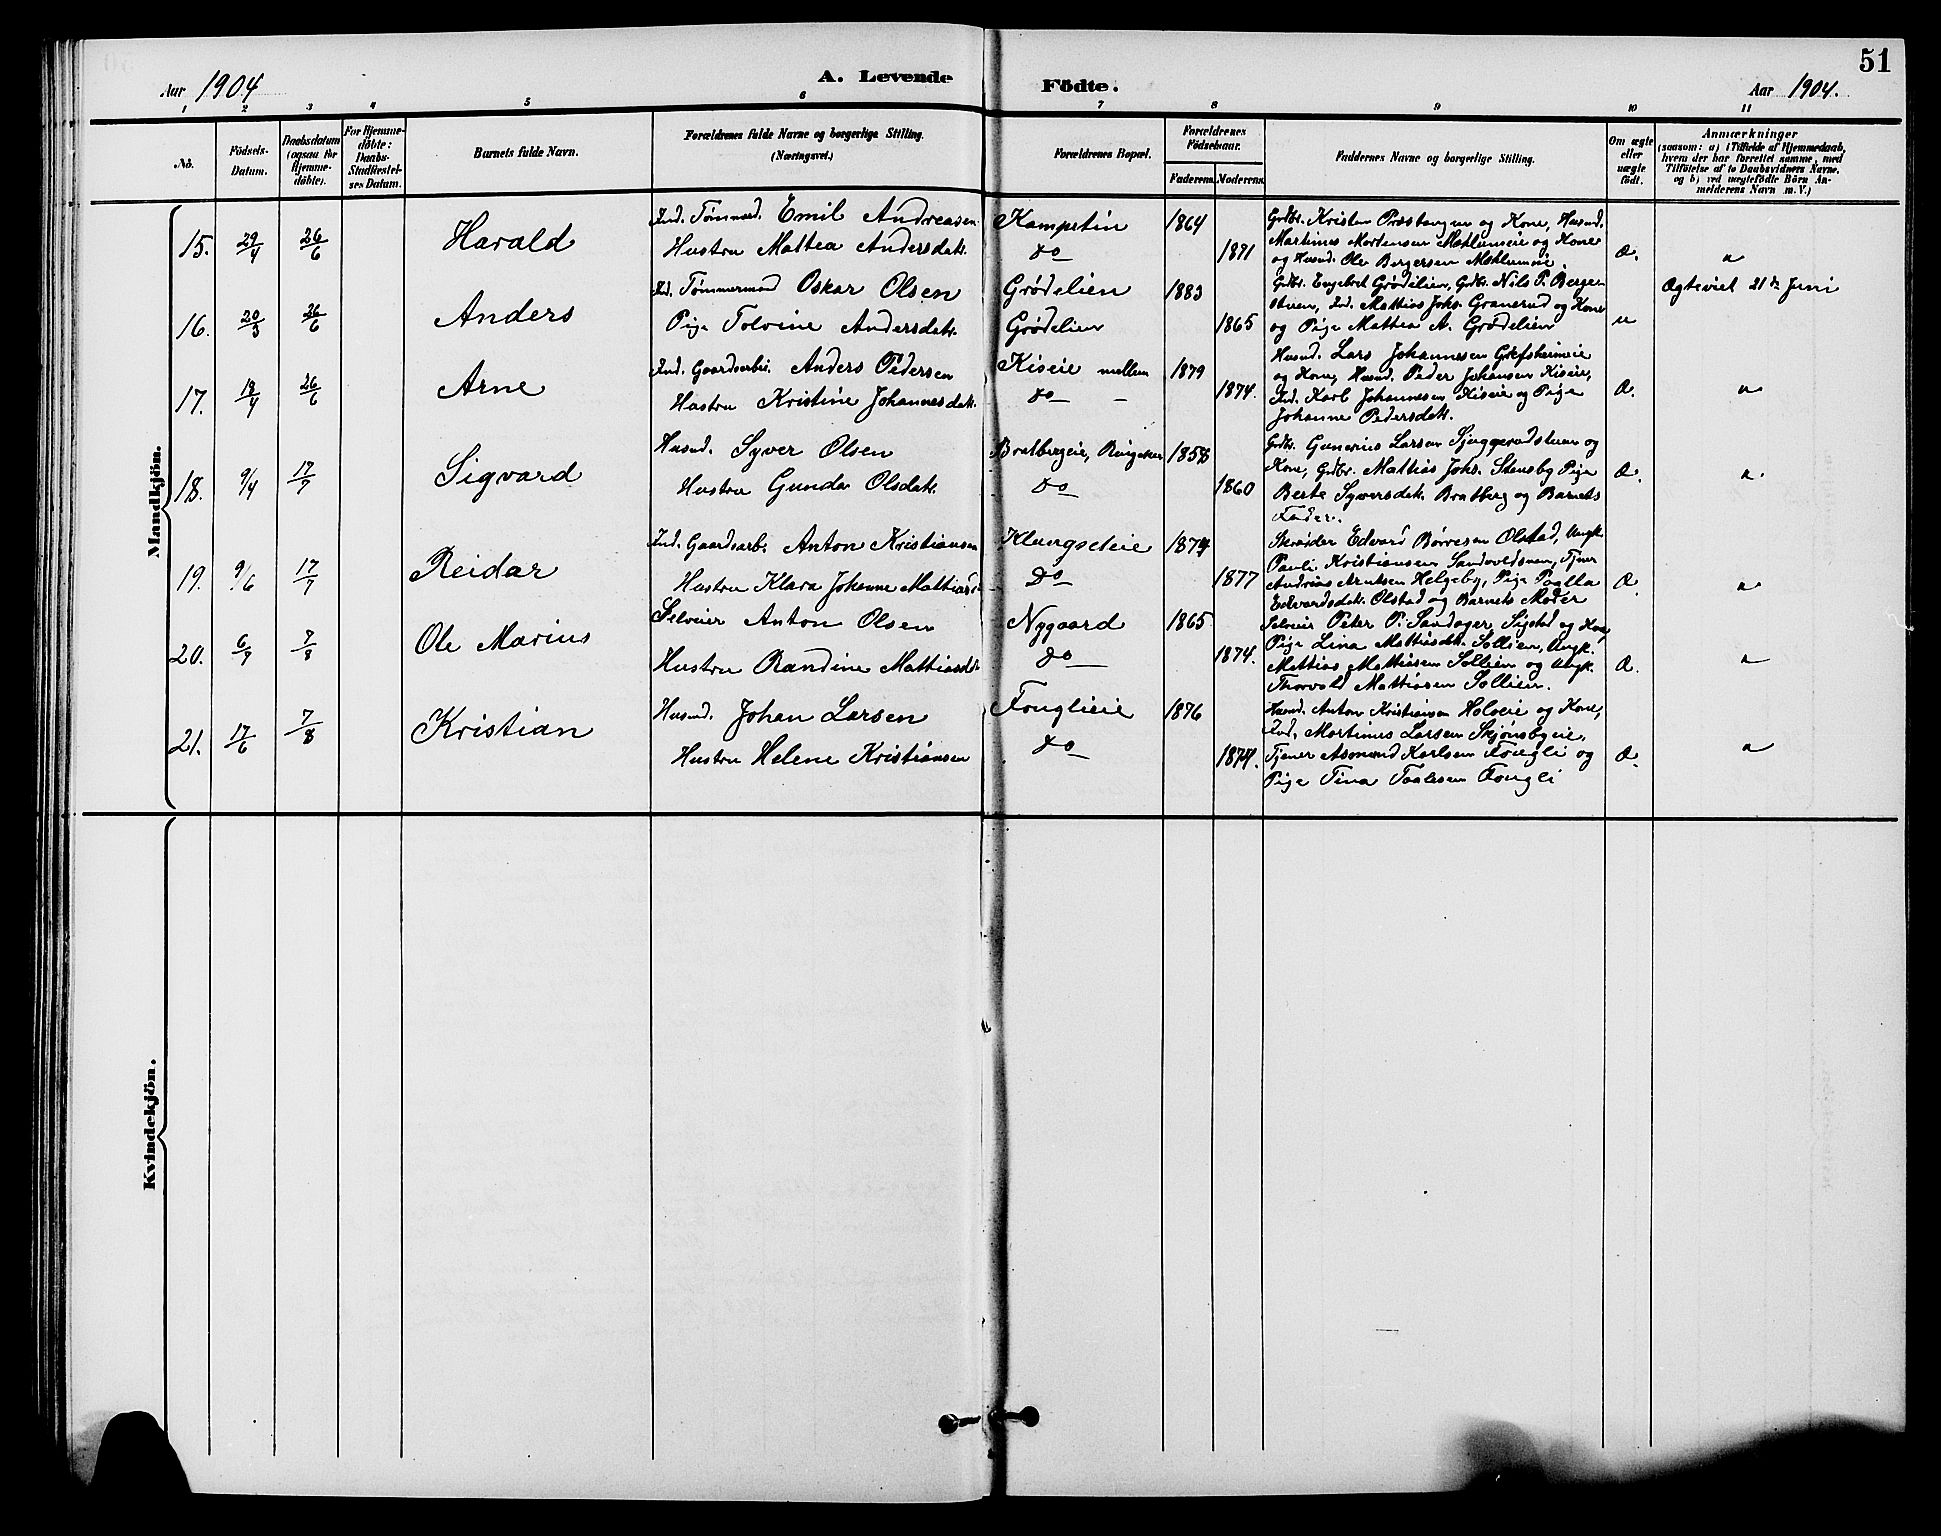 51
Aar 1904
A. Levende
Födte.
Aar 1904.
1 2 3 4 5 6 7 8 9 10 11
No.
Födsels-
Datum.
Daabsdatum
(ogsaa for
Hjemme-
döbte).
For Hjemme-
döbte:
Daabs-
Stadfæstel-
ses Datum.
Barnets fulde Navn.
Forældrenes fulde Navne og borgerlige Stilling.
(Næringsvei.)
Forældrenes Bopæl.
Forældrenes
Födselsaar.
Faderens. Moderens.
Faddernes Navne og borgerlige Stilling.
Om ægte
eller
uægte
födt.
Anmærkninger
(saasom: a) i Tilfælde af Hjemmedaab,
hvem der har forrettet samme, med
Tilföielse af to Daabsvidners Navne,
og b) ved uægtefödte Börn An-
melderens Navn m. V.)
Mandkjön.
15. 29/4 26/6 Harald
Ind. Tømmed. Emil Andreasen
Hustru Mattea Andersdatr.
Kampetin 1864
do 1871
Grdbr. Kristen Præstengen og Kone, Husmd.
Martinus Mortensen Mælumeie og Kone
og Husmd. Ole Bergersen Mælumeie
Æ. "
16. 20/3 26/6 Anders
Ind. Tømmermand Oskar Olsen
Pige Tolvine Andersdatr.
Grødelien 1883
Grødelien 1865
Grdbr. Engebret Grødelien, Grdbr. Nils P. Berger-
stuen, Ind. Mattias Johs. Granerud og Kone
og Pige Mattea A. Grødelien
u
Ægteviet 21de Juni
17. 18/4 26/6 Arne
Ind. Gaardsarbei. Anders Pedersen
Hustru Kristine Johannesdatr.
Kiseie mellem 1879
do - 1874.
Husmd. Lars Johannesen Gjefsheimeie
og Kone, Husmd. Peder Johansen Kiseie,
Ind. Karl Johannesen Kiseie og Pige
Johanne Pedersdatr.
Æ. "
18. 9/4 17/7 Sigvard
Husmd. Syver Olsen
Hustru Gunda Olsdatr.
Bratbergeie, Ringsaker
do 1860
Grdbr. Gunerius Larsen Sjuggerudstuen og
Kone, Grdbr. Mattias Johs. Stensby Pige
Berte Syversdatr. Bratberg og Barnets
Fader.
Æ. "
19. 9/6 17/7 Reidar
Ind. Gaardsarb. Anton Kristiansen
Hustru Klara Johanne Mattiasd.
Klungseteie
Do 1877
Skræder Edvard Børresen Olstad, Ungk.
Pauli Kristiansen Sandvoldsven, Tjener
Andreas Arntsen Helgeby, Pige
Edvardsdatr. Olstad og Barnets Moder
Æ. "
20. Ole Marius 7/8
Selveier Anton Olsen
Hustru Randine Mattiasdtr
Nygaard 1865
do 1874.
Selveier Peter P. Sandager, Sigstad og Kone,
Pige Lina Mattiasdtr. Sollien, Ungk.
Mattias Mattiasen Sollien og Ungk.
Thorvald Mattiasen Sollien.
Æ. "
21. 17/6 7/8 Kristian
Husmd. Johan Larsen
Hustru Helene Kristiansen
Fouglieie 1876
do
Husmd. Anton Kristiansen Holveie og Kone,
Ind. Martinus Larsen Skjønsbyeie,
Tjener Asmund Karlsen Fougli og
Pige Tina Taalesen Fougli
Æ. "
Kvindekjön.